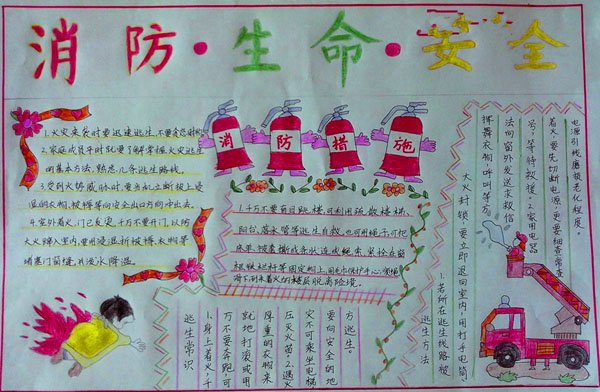 消防·生命·安全
1.火灾来袭时要迅速逃生,不要贪恋财物
2.家庭成员平时就要了解掌握火灾逃生
的基本方法,熟悉几条逃生路线。
3.受到火势威胁时,要当机立断披上浸
湿的衣物、被褥等向安全出口方向冲出去。
4.室外着火,门已发烫,千万不要开门,以防
大火蹿入室内,要用浸湿的被褥、衣物等
堵塞门窗缝,并泼水降温。
消防措施
1.千万不要盲目跳楼,可利用疏散楼梯、
阳台、落水管等逃生自救,也可用绳子或把
床单、被套撕成条状连成绳索,紧拴在窗
框、铁栏杆等固定物上,用毛巾保护手心,顺绳
滑下,到未着火的楼层脱离险境。
逃生常识
1.身上着火,千
万不要奔跑,可
就地打滚或用
厚重的衣物来
压灭火苗。2.遇火
灾不可乘坐电梯
要向安全的地
方逃生。
逃生方法
1.若所在逃生线路被
大火封锁,要立即退回室内,用打手电筒、
挥舞衣物、呼叫等方
法向窗外发送求救信
号,等待救援。2.家用电器
着火,要先切断电源,更要细查常查
电源引线磨损老化程度。